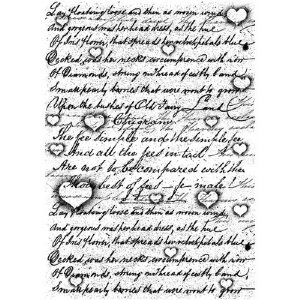 Lay flowing loose and then as morn wind,
And gorgeous was her head dress, as the hue
Of Iris flower, that spreads her velvet petals blue
Decked was her neck's circumference with row
Of Diamonds, strung on thread of costly band,
Small pearly berries that were wont to grow
Upon the bushes of Old Fairy Land
Epigram
The fee simple and the simple fee
And all the fees in tail
Are not to be compared with thee
Thou best of fees - fe male!
Lay flowing loose and then as morn wind,
And gorgeous was her head dress, as the hue
Of Iris flower, that spreads her velvet petals blue
Decked was her neck's circumference with row
Of Diamonds, strung on thread of costly band,
Small pearly berries that were wont to grow